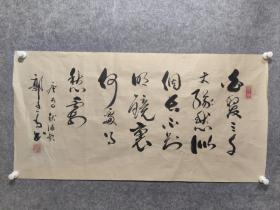 白髮三千
丈緣愁似
個長不知
明鏡裏
何處得
秋霜
秋浦歌